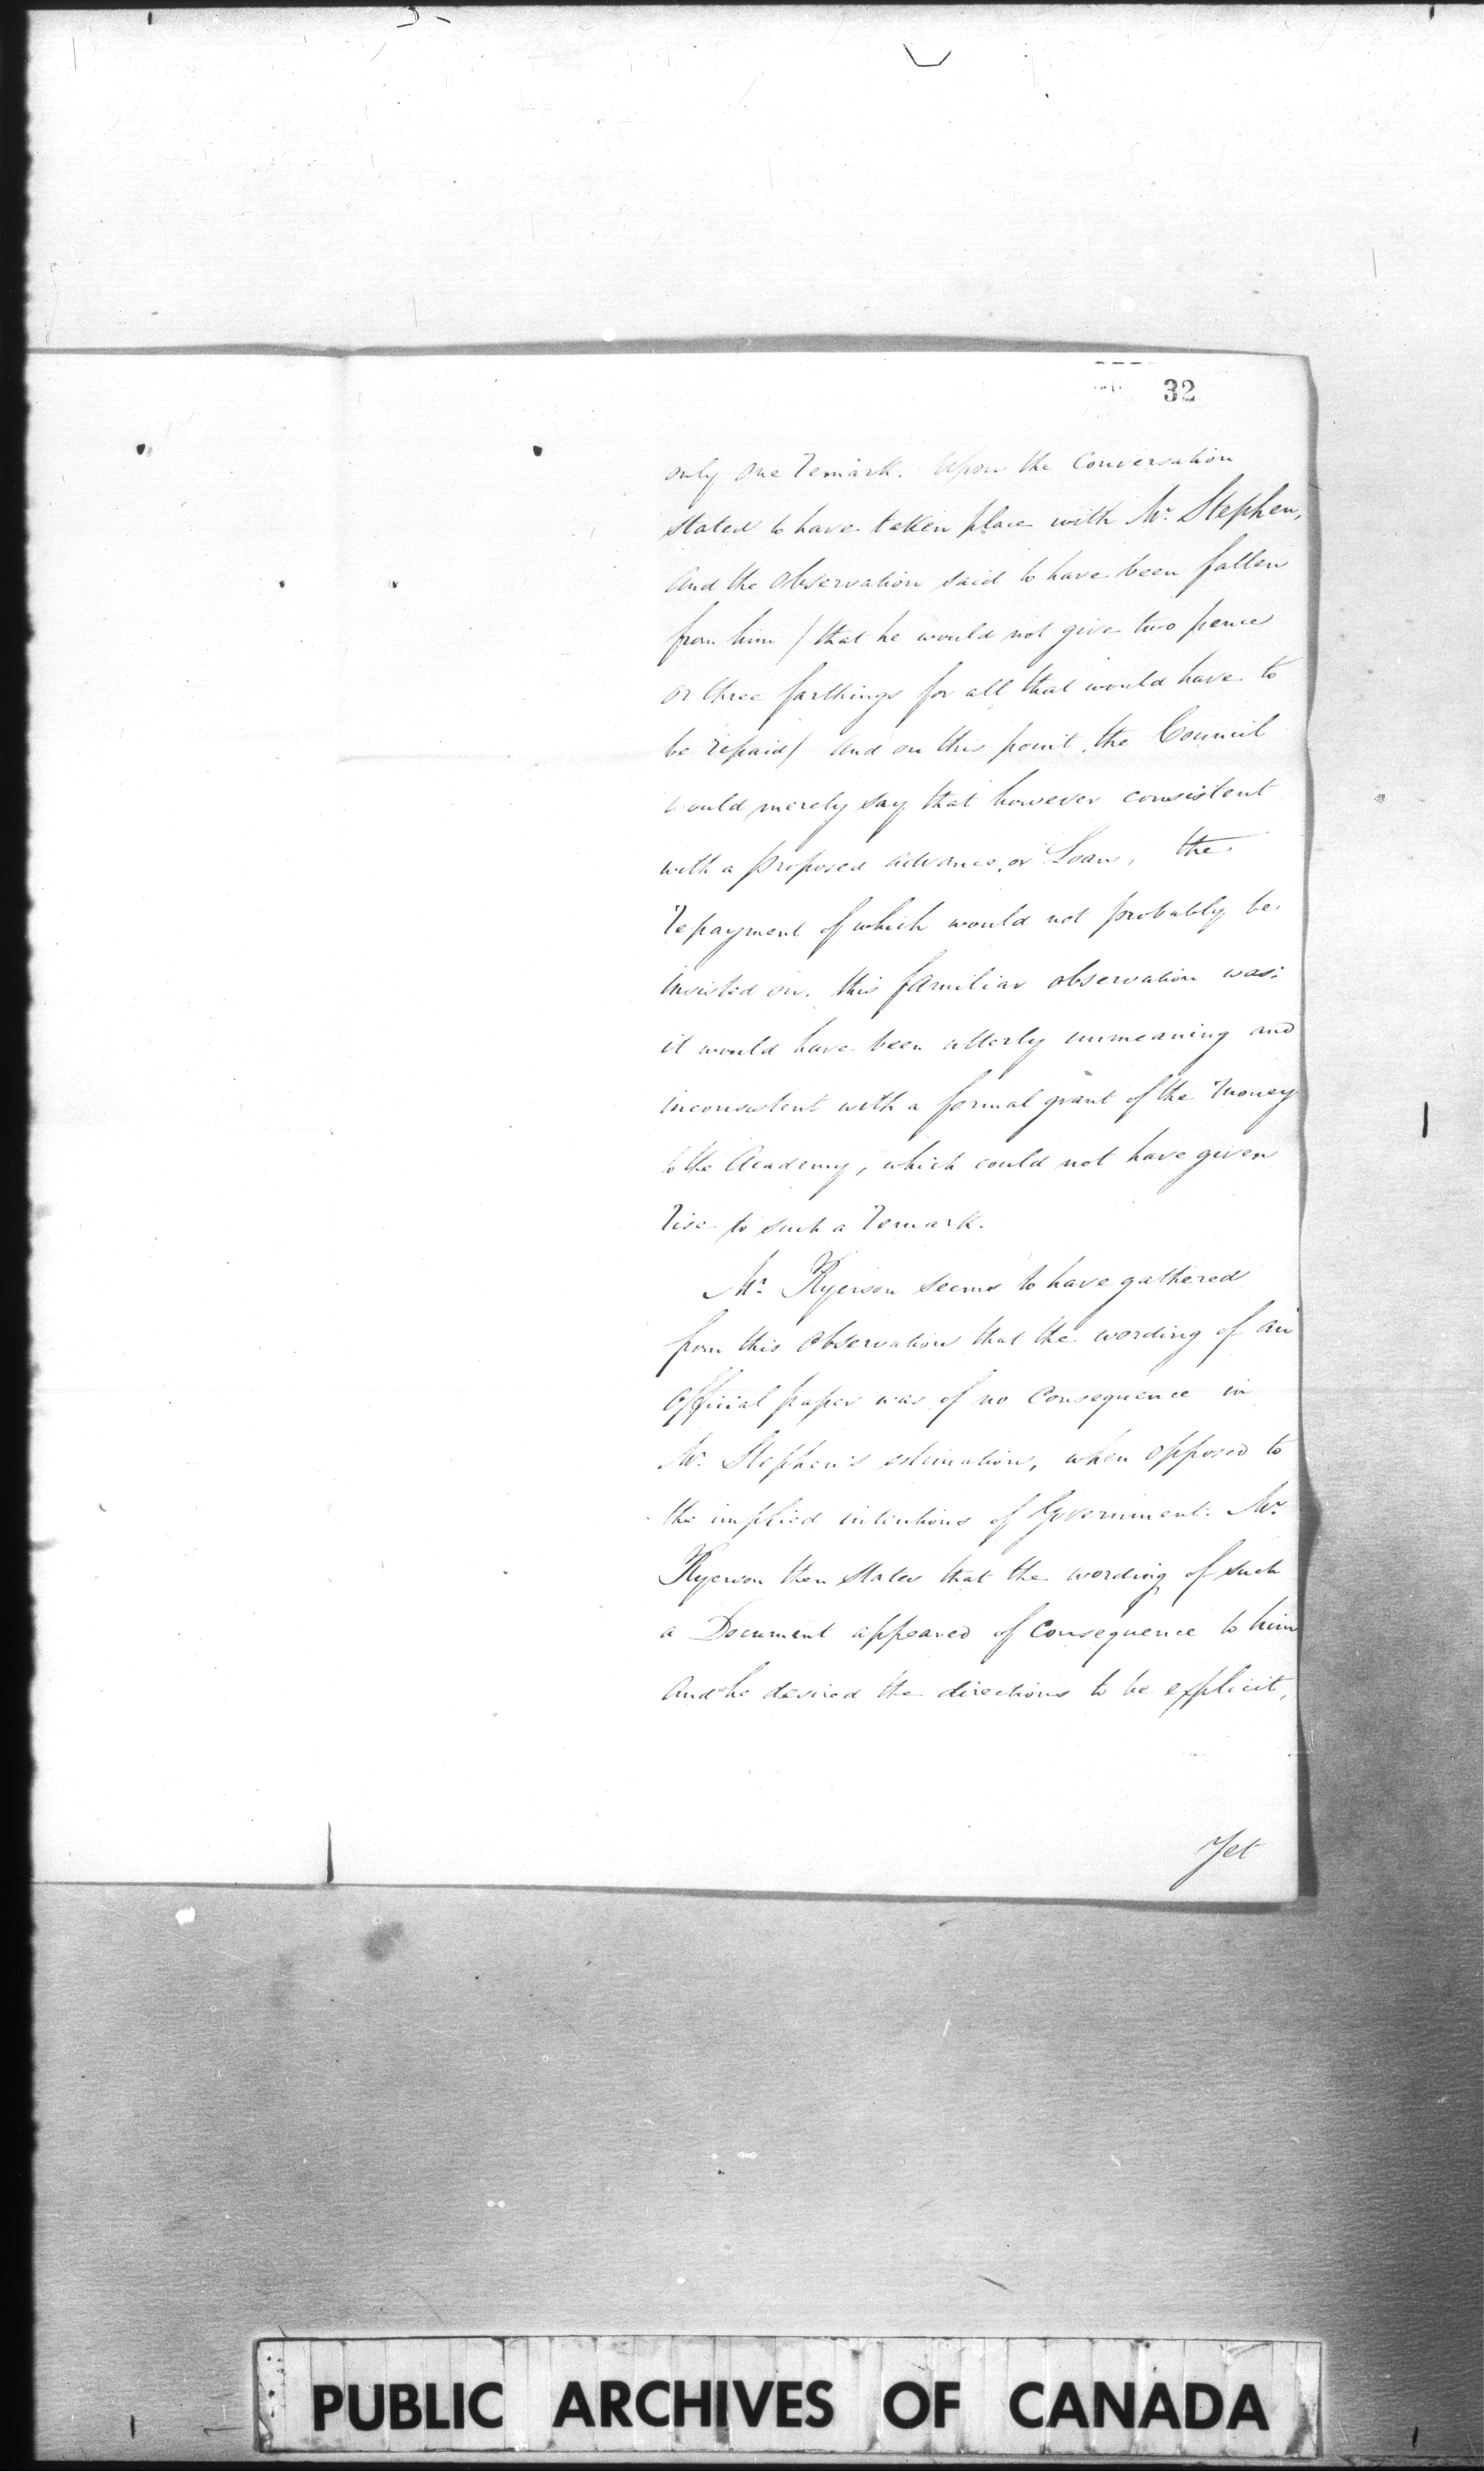 32
only one remark. Upon the Conversation
stated to have taken place with Mr. Stephen,
and the Observation said to have been fallen
from him / that he would not give two pence
or three farthings for all that would have to
be repaid / and on this point, the Council
would merely say that however consistent
with a proposed advance, or Loan, the
repayment of which would not probably be
insisted on. this familiar observation was:
it would have been utterly unmeaning and
inconsistent with a formal grant of the money
to the Academy, which could not have given
rise to such a remark.
Mr. Ryerson seems to have gathered
from this Observation that the wording of an
Official paper was of no Consequence in
Mr. Stephen's estimation, when opposed to
the implied intentions of Government. Mr.
Ryerson then states that the wording of such
a Document appeared of Consequence to him
and he desired the directions to be explicit,
Yet
PUBLIC ARCHIVES OF CANADA